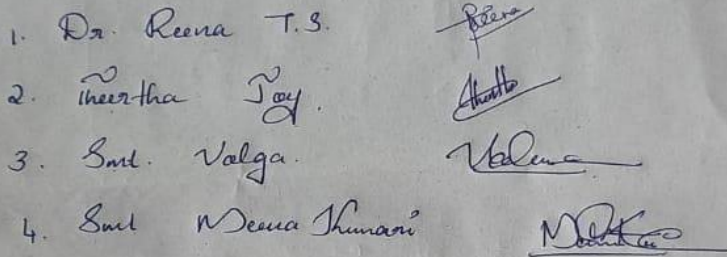 1. Dr. Reena T.S. Reena
2. Theertha Joy.
3. Smt. Valga.
4. Smt Meena Kumari